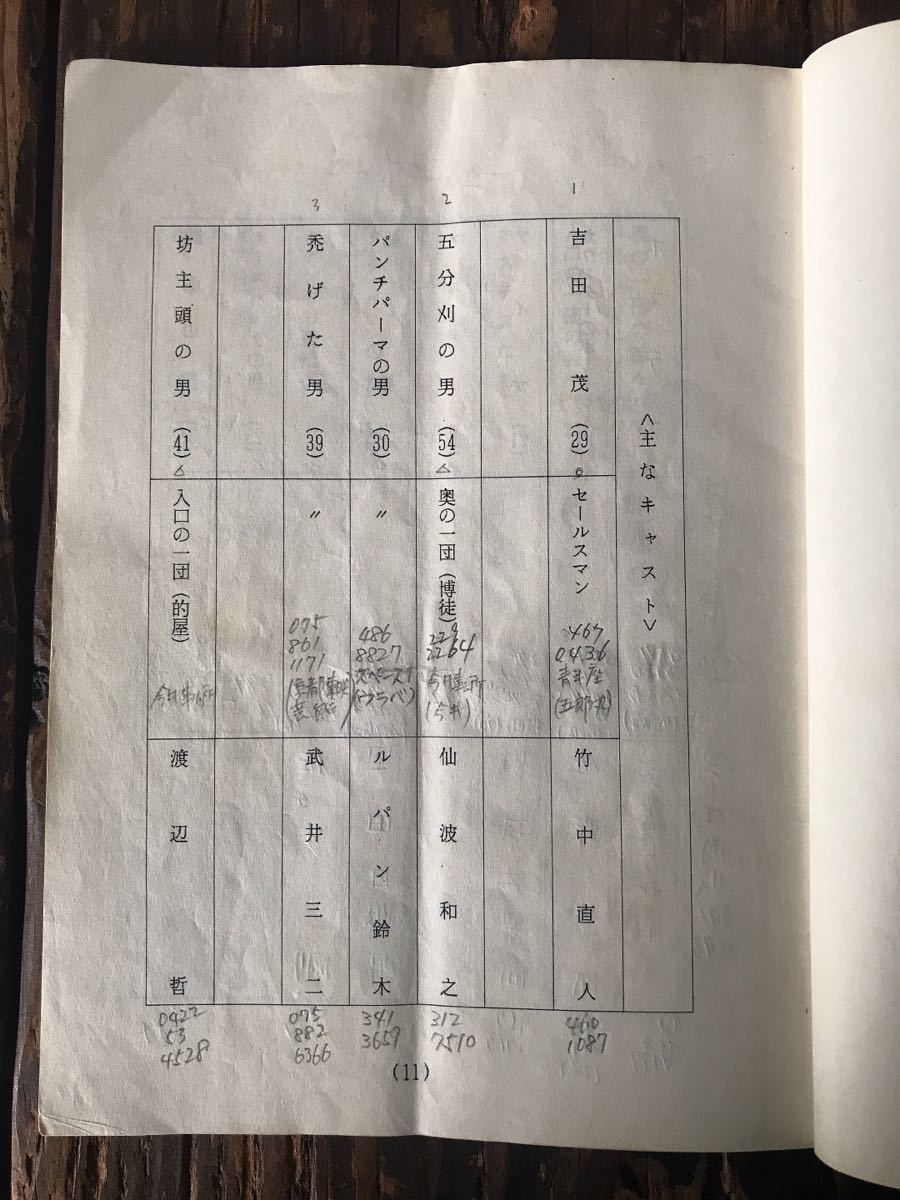 <主なキャスト>
1
吉田茂(29)
セールスマン
0436
青年座
竹中直人
460
1087
2
五分刈の男(54)
△
奥の一団(博徒)
2264
仙波和之
312
7510
パンチパーマの男(30)
〃
486
8827
ルパン鈴木
341
3659
3
禿げた男(39)
〃
075
861
1171
武井三二
075
882
6366
坊主頭の男(41)
△
入口の一団(的屋)
渡辺哲
0422
53
4528
(11)